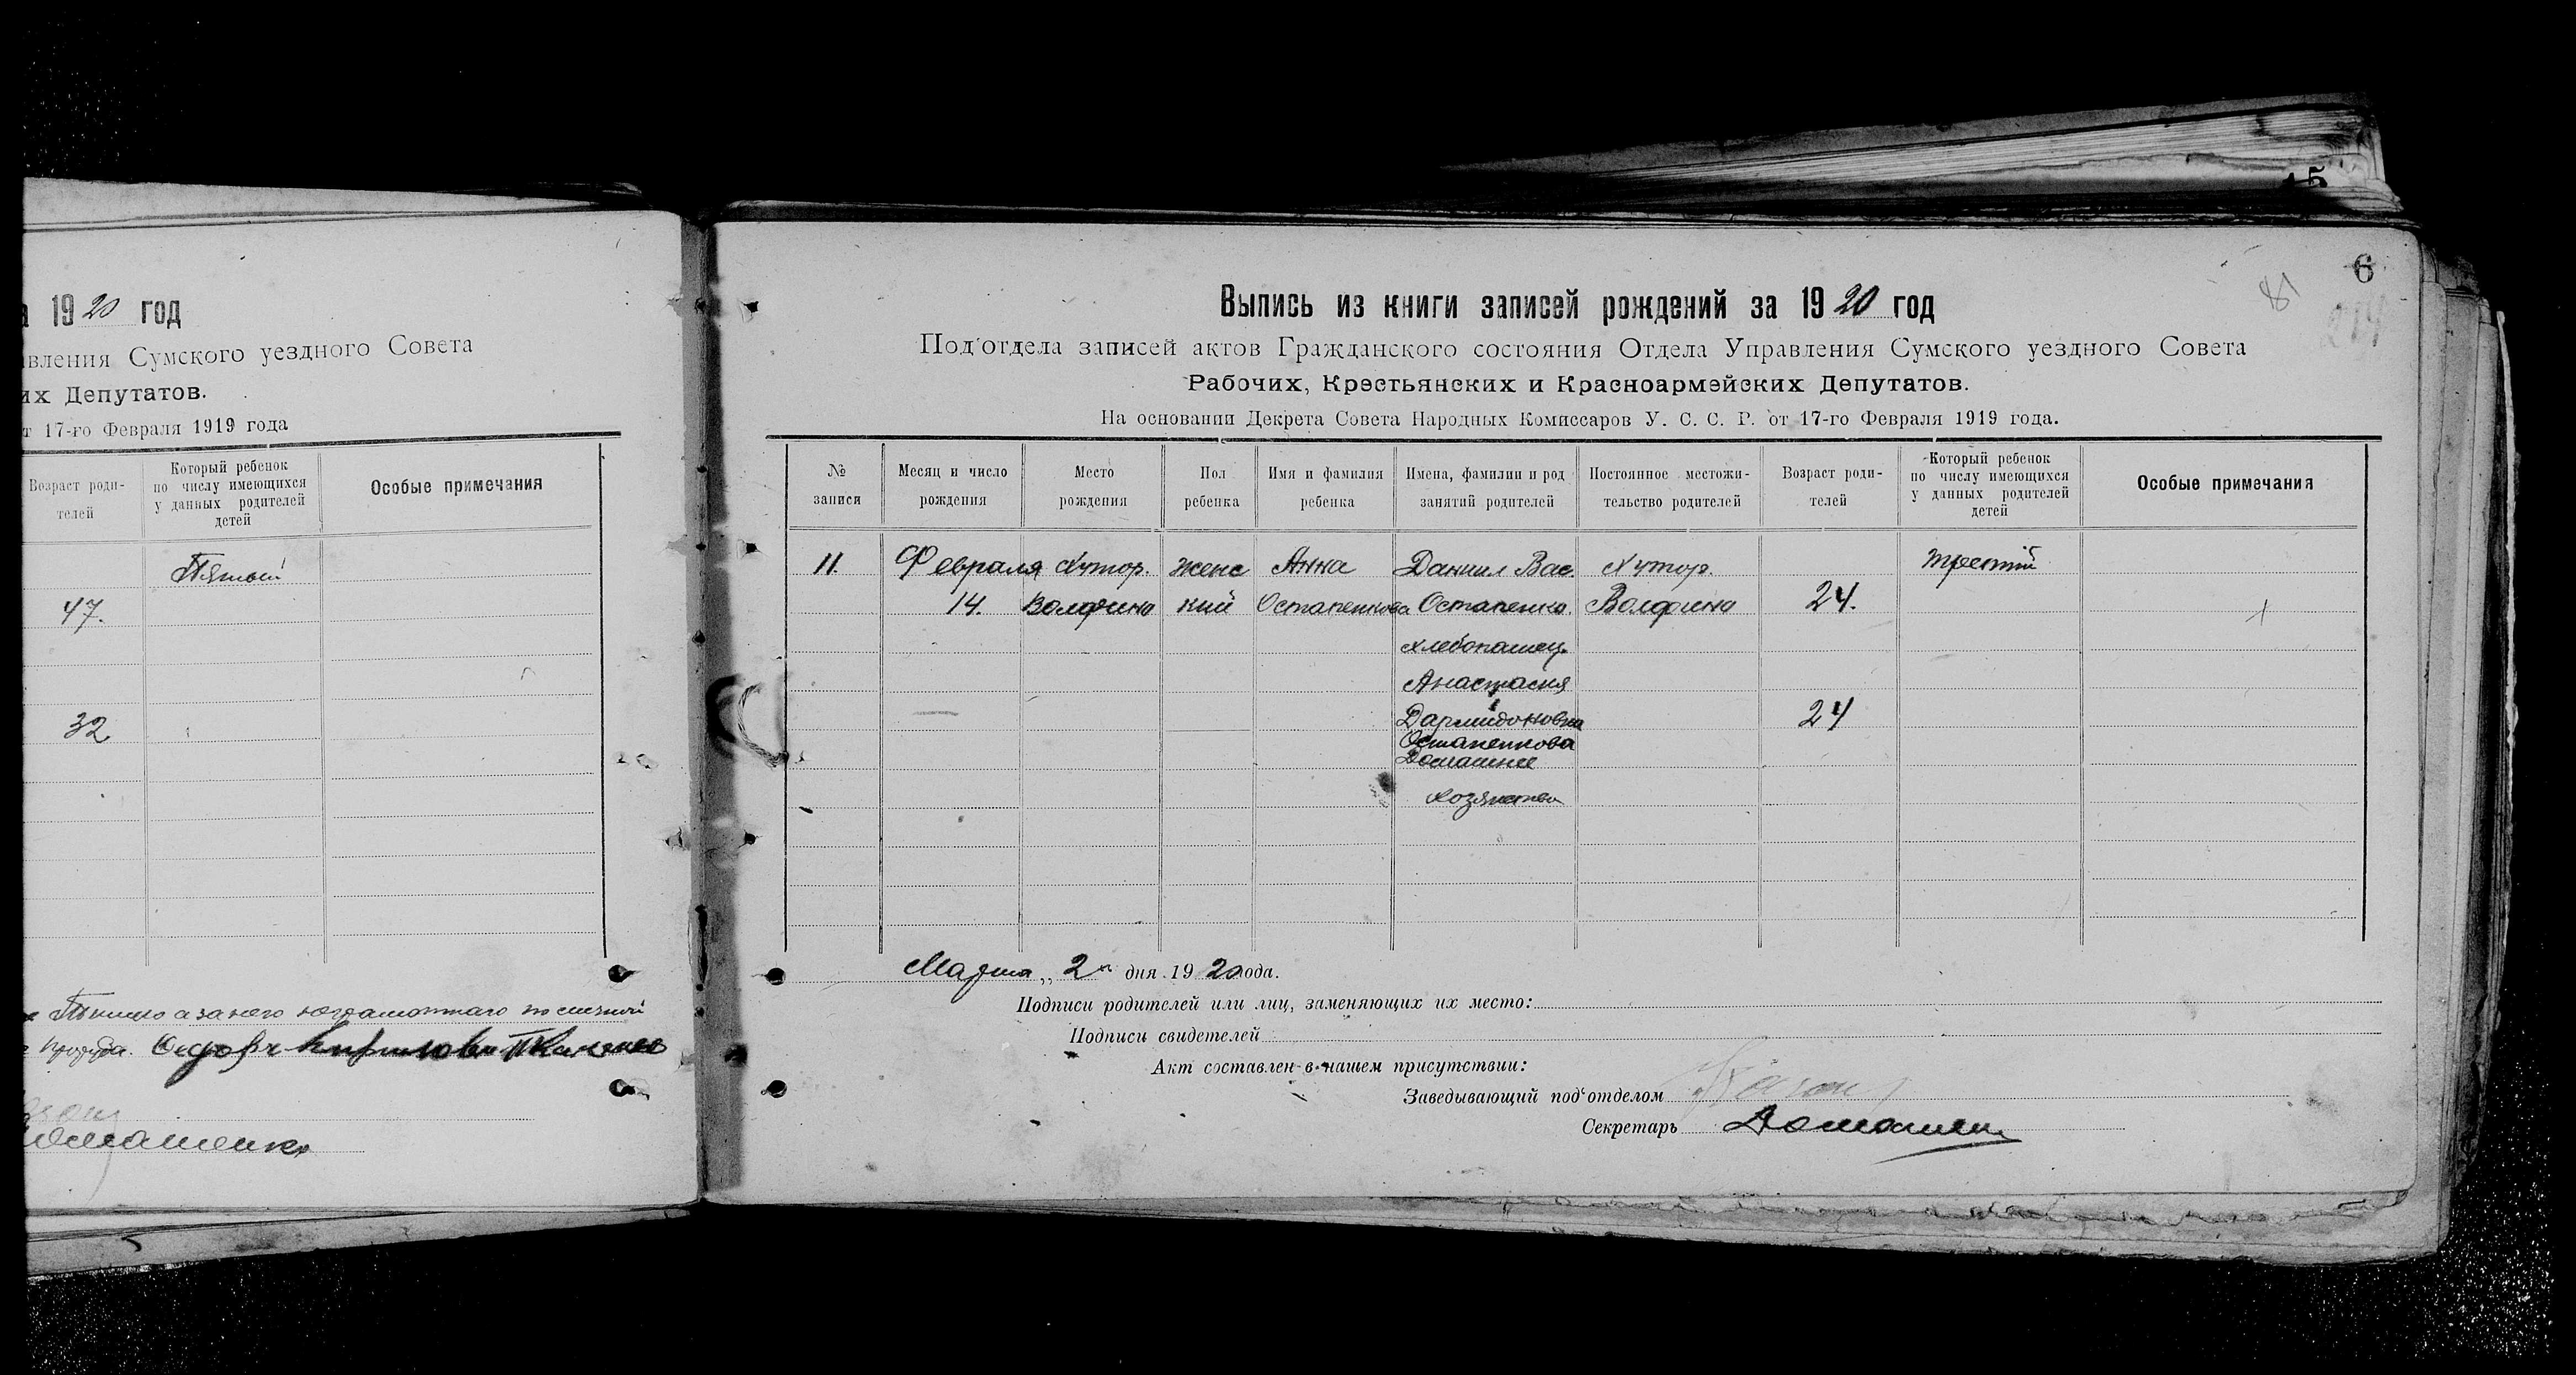 а 1920 год
авления Сумского уездного Совета
их Депутатов.
т 17-го Февраля 1919 года
Возраст роди-
телей
Который ребенок
по числу имеющихся
у данных родителей
детей
Особые примечания
Пятый
47.
32
а за него неграмотнаго по личной
Ткаченко
15
6
81
274
Выпись из книги записей рождений за 1920 год
Под'отдела записей актов Гражданского состояния Отдела Управления Сумского уездного Совета
Рабочих, Крестьянских и Красноармейских Депутатов.
На основании Декрета Совета Народных Комиссаров У. С. С. Р. от 17-го Февраля 1919 года.
№
записи
Месяц и число
рождения
Место
рождения
Пол
ребенка
Имя и фамилия
ребенка
Имена, фамилии и род
занятий родителей
Постоянное местожи-
тельство родителей
Возраст роди-
телей
Который ребенок
по числу имеющихся
у данных родителей
детей
Особые примечания
11. Февраля Хутор. женс Анна Даниил Вас. Хутор. третий
14. Волфино кий Остапенкова Остапенко Волфино 24.
хлебопашец.
Анастасия
Дармидоновна 24
Остапенкова
Домашнее
хозяйство
Марта „2" дня 1920 года.
Подписи родителей или лиц, заменяющих их место:
Подписи свидетелей
Акт составлен в нашем присутствии:
Заведывающий под'отделом
Секретарь